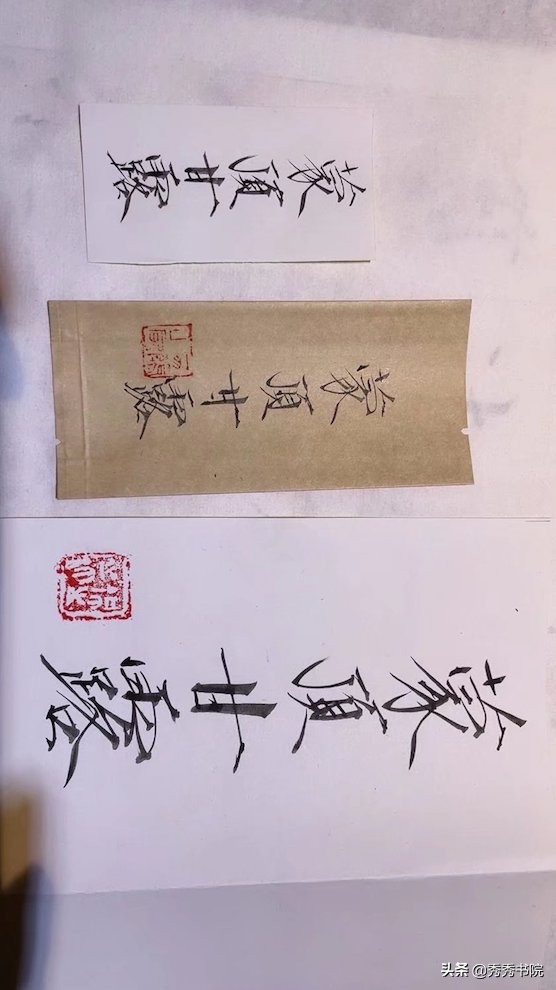 蒙顶甘露
蒙顶甘露
蒙顶甘露
头条 @秀秀书院